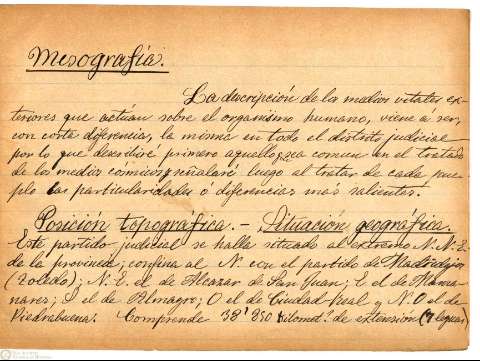 Mesografía.
La descripción de los medios vitales ex-
teriores que actúan sobre el organismo humano, viene a ser,
con corta diferencia, la misma en todo el distrito judicial
por lo que describiré primero aquello sea comun en el tratado
de los medios comunes, señalaré luego el tratar de cada pue-
blo las particularidades ó diferencias más salientes.
Posición topográfica. - Situación geográfica.
Este partido judicial se halla situado al extremo N. N. E.
de la provincia; confina al N. con el partido de Madridejos
(Toledo); N. E. el de Alcazar de San Juan; E. el de Manza-
nares; S. el de Almagro; O el de Ciudad Real y N. O el de
Piedrabuena. Comprende 38' 850 kilomet.s de extensión (7 leguas)